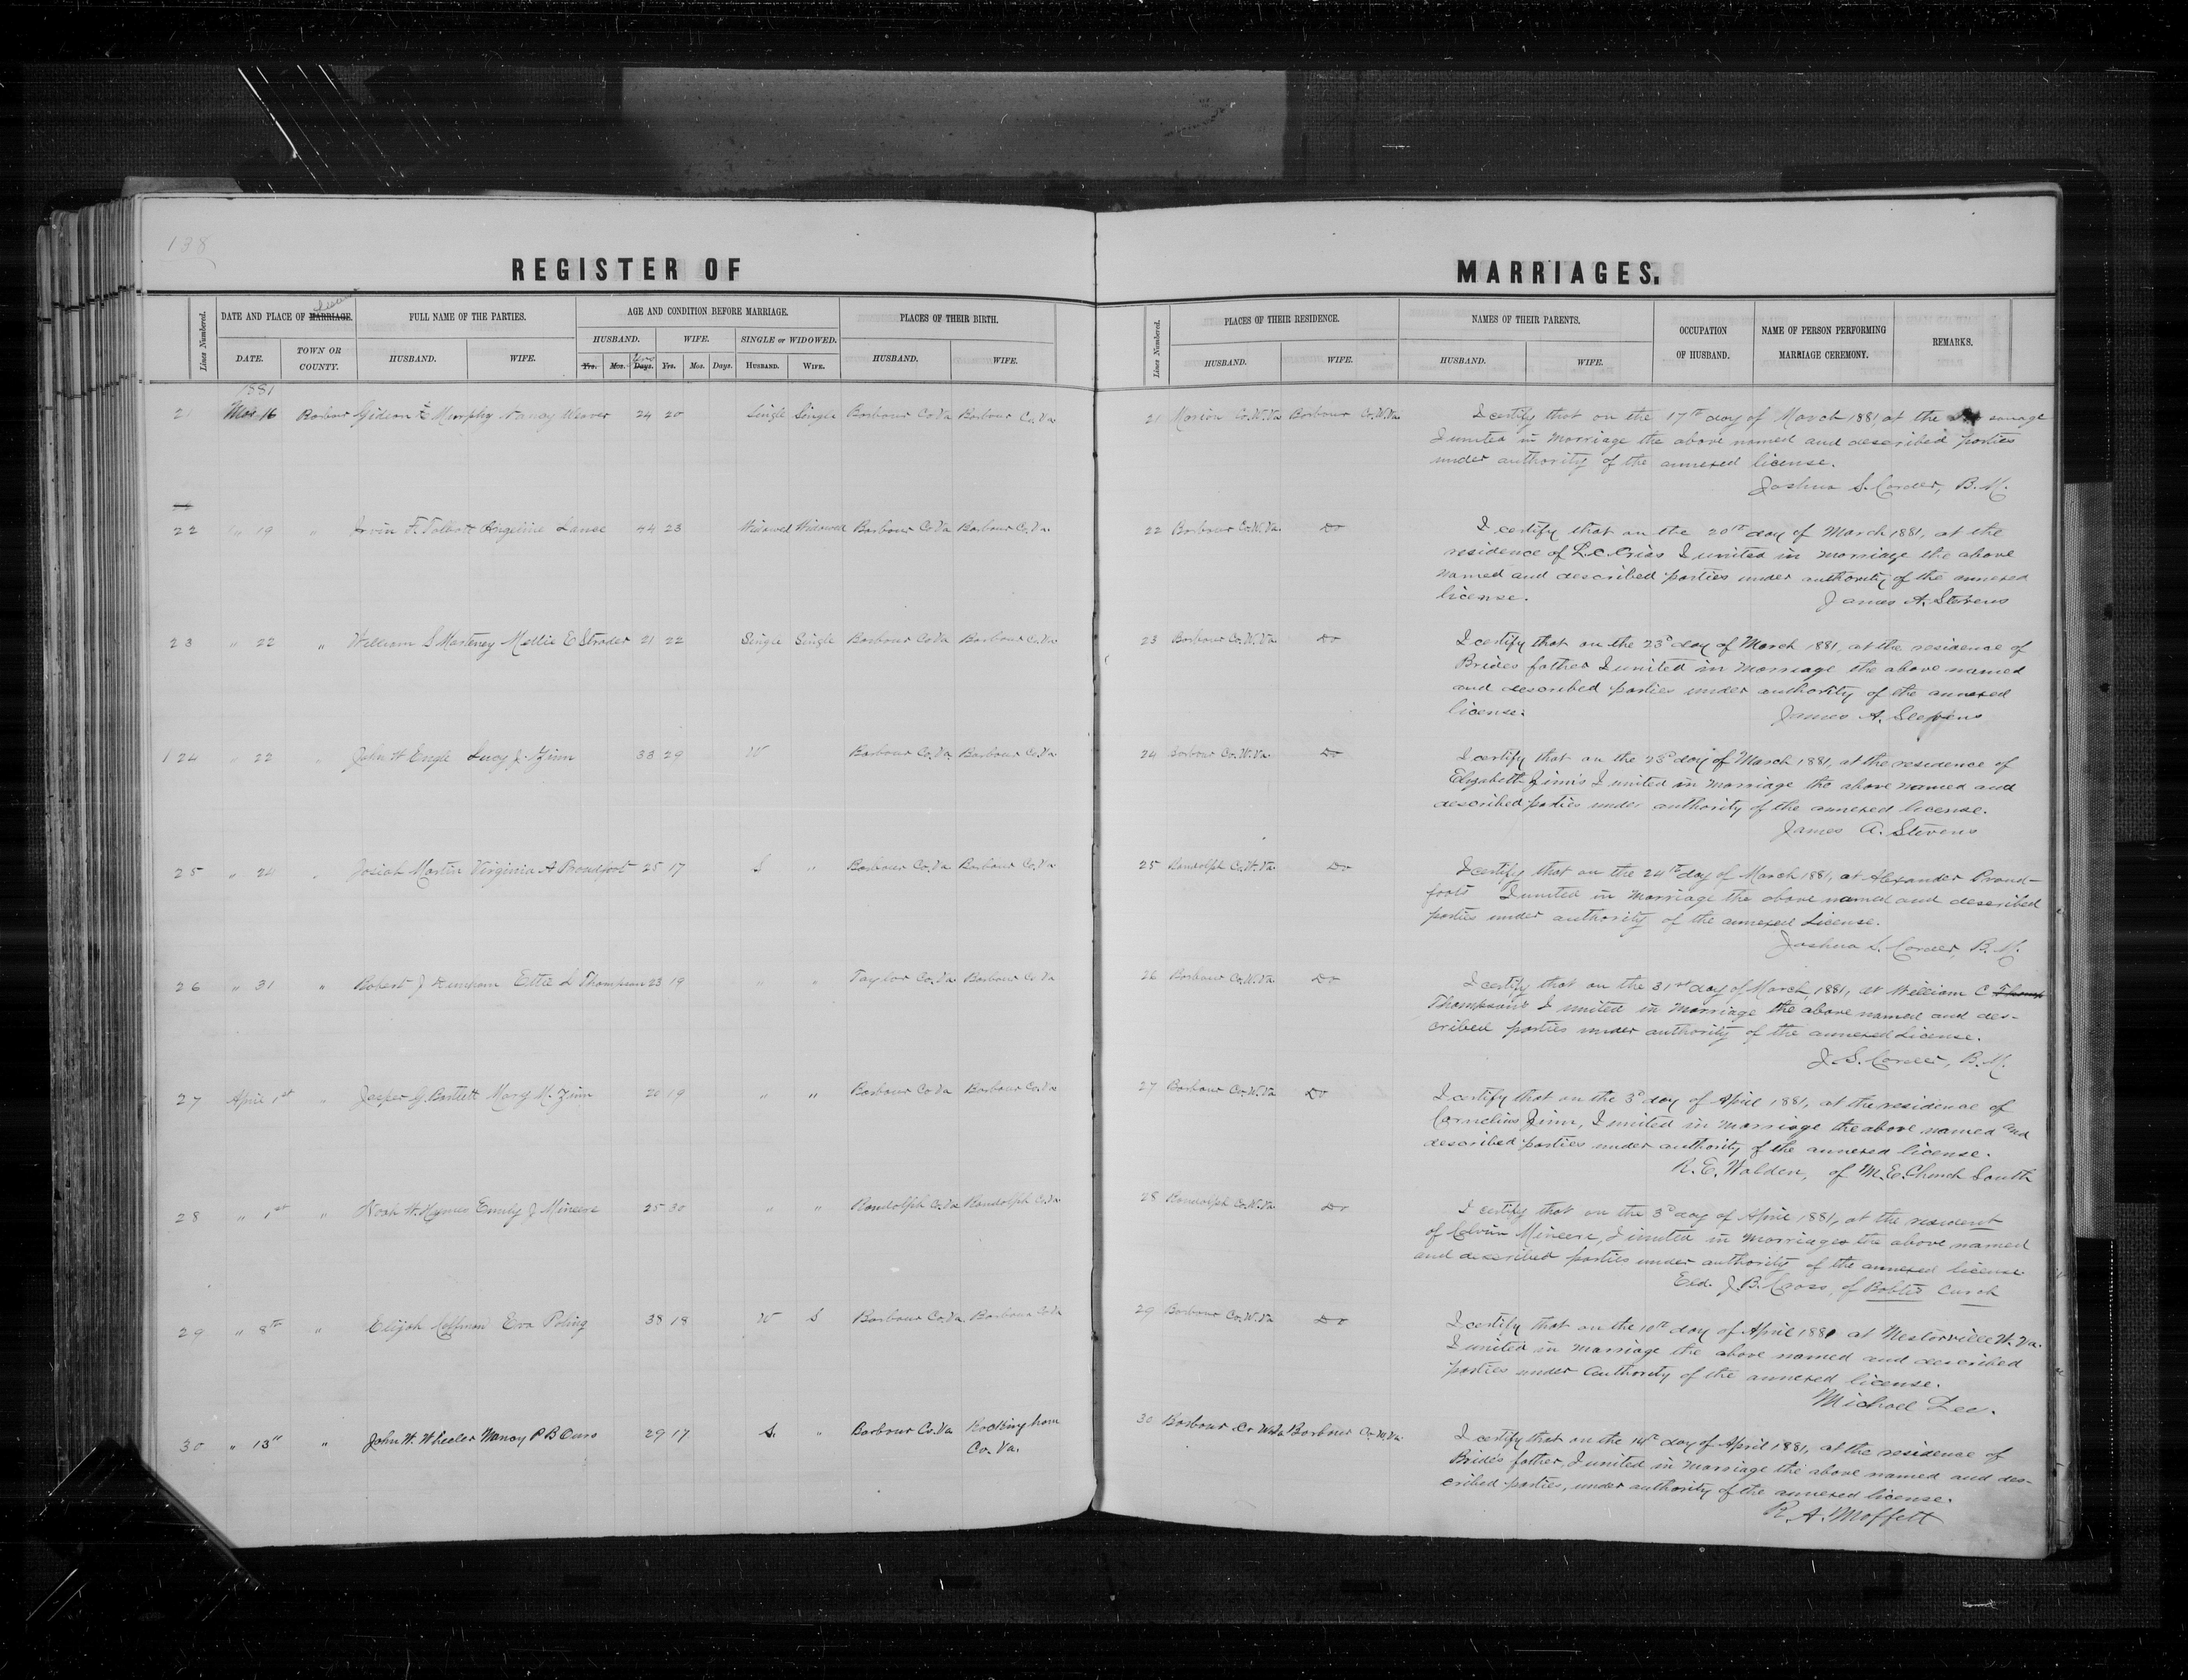 138
REGISTER OF MARRIAGES.
Lines Numbered. DATE AND PLACE OF MARRIAGE. FULL NAME OF THE PARTIES. AGE AND CONDITION BEFORE MARRIAGE. PLACES OF THEIR BIRTH.
HUSBAND. WIFE. SINGLE or WIDOWED.
DATE. TOWN OR COUNTY. HUSBAND. WIFE. Yrs. Mos. Days. Yrs. Mos. Days. HUSBAND. WIFE. HUSBAND. WIFE.
Lines Numbered. PLACES OF THEIR RESIDENCE. NAMES OF THEIR PARENTS. OCCUPATION OF HUSBAND. NAME OF PERSON PERFORMING MARRIAGE CEREMONY. REMARKS.
HUSBAND. WIFE. HUSBAND. WIFE.
1881
21 Mar 16 Barbour Gideon Murphy Nancy Weaver 24 20 Single Single Barbour Co. Va Barbour Co. Va.
21 Marion Co. W. Va Barbour Co. W. Va.
I certify that on the 17th day of March 1881, at the sonage
I united in marriage the above named and described parties
under authority of the annexed license.
Joshua S. Corder, B. M.
22 " 19 " Irvin F. Talbott Angeline Lance 44 23 Widowed Widowed Barbour Co. Va Barbour Co. Va.
22 Barbour Co. W. Va. Do
I certify that on the 20th day of March 1881, at the
residence of L. C. Criss I united in marriage the above
named and described parties under authority of the annexed
license.
James A. Stevens
23 " 22 " William S Marteney Mellie E Strader 21 22 Single Single Barbour Co Va Barbour Co. Va
23 Barbour Co. W. Va. Do
I certify that on the 23d day of March 1881, at the residence of
Brides father I united in marriage the above named
and described parties under authority of the annexed
license.
James A. Steppens
124 " 22 " John H Engle Lucy J. Zinn 33 29 W Barbour Co. Va. Barbour Co. Va
24 Barbour Co. W. Va. Do
I certify that on the 23d day of March 1881, at the residence of
Elizabeth Zinn's I united in marriage the above named and
described parties under authority of the annexed license.
James A. Stevens
25 " 24 " Josiah Martin Virginia A Proudfoot 25 17 S " Barbour Co. Va Barbour Co. Va
25 Randolph Co. W. Va. Do
I certify that on the 24th day of March 1881, at Alexander Proud-
foots I united in marriage the above named and described
parties under authority of the annexed License.
Joshua S. Corder, B. M.
26 " 31 " Robert J Denham Ettie L Thompson 23 19 " " Taylor Co. Va Barbour Co Va
26 Barbour Co. W. Va Do
I certify that on the 31st day of March, 1881, at William C Thomp
Thompson's I united in marriage the above named and des-
cribed parties under authority of the annexed License.
J. S. Corder, B. M.
27 April 1st " Jasper G. Bartlett Mary M. Zinn 20 19 " " Barbour Co Va Barbour Co. Va
27 Barbour Co. W. Va Do
I certify that on the 3d day of April 1881, at the residence of
Cornelius Zinn, I united in marriage the above named and
described parties under authority of the annexed license.
R. E. Walden, of M. E. Church South
28 " 1st " Noah W. Hymes Emily J Mineere 25 30 " " Randolph Co. Va Randolph Co. Va
28 Randolph Co. W. Va. Do
I certify that on the 3d day of April 1881, at the resident
of Calvin Mineere, I united in marriages the above named
and described parties under authority of the annexed license
Eld. J. B. Cross, of Babtis Curch
29 " 8th " Elijah Coffman Eva Poling 38 18 W S Barbour Co. Va. Barbour Co Va
29 Barbour Co. W. Va Do
I certify that on the 10th day of April 1881 at Nestorville W. Va.
I united in marriage the above named and described
parties under authority of the annexed license.
Michael Lee.
30 " 13" " John W. Wheeler Nancy P B Ours 29 17 S. " Barbour Co. Va Rockingham
Co. Va.
30 Barbour Co W. Va Barbour Co. W. Va.
I certify that on the 14th day of April 1881, at the residence of
Bride's father, I united in marriage the above named and des-
cribed parties, under authority of the annexed license.
R. A. Moffett